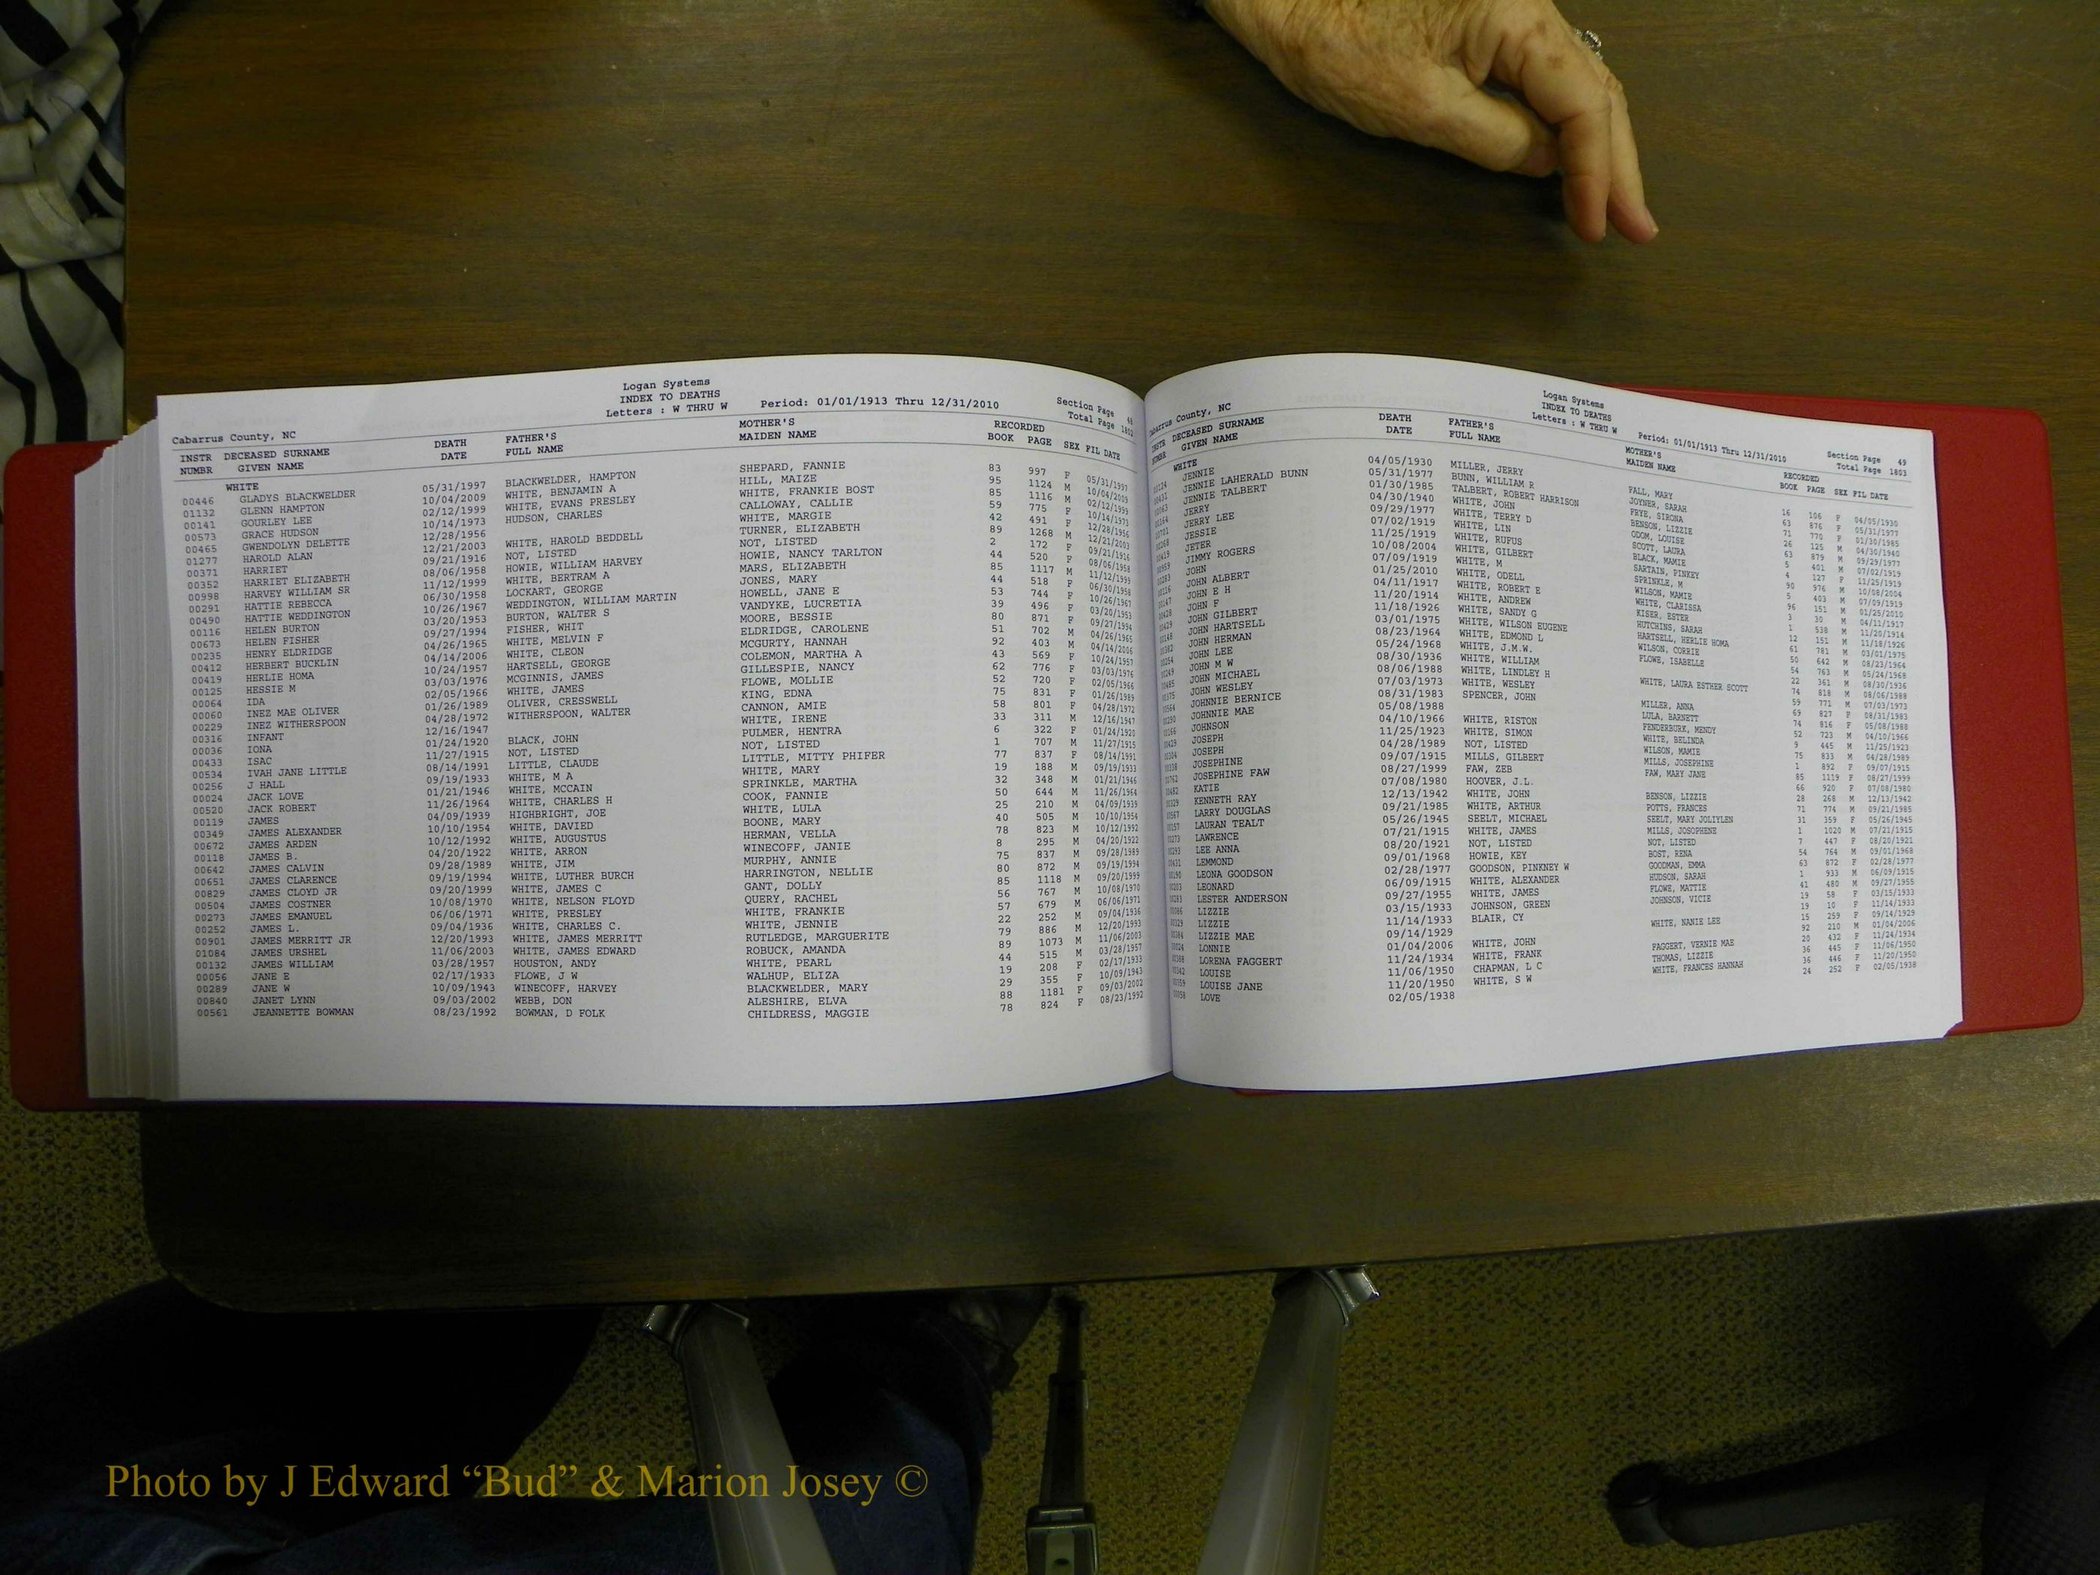 Logan Systems
INDEX TO DEATHS
Letters : W THRU W Period: 01/01/1913 Thru 12/31/2010
Section Page 48
Total Page 1802
Cabarrus County, NC
INSTR NUMBR DECEASED SURNAME GIVEN NAME DEATH DATE FATHER'S FULL NAME MOTHER'S MAIDEN NAME RECORDED BOOK PAGE SEX FIL DATE
WHITE
00446 GLADYS BLACKWELDER 05/31/1997 BLACKWELDER, HAMPTON SHEPARD, FANNIE 83 997 F 05/31/1997
01132 GLENN HAMPTON 10/04/2009 WHITE, BENJAMIN A HILL, MAIZE 95 1124 M 10/04/2009
00141 GOURLEY LEE 02/12/1999 WHITE, EVANS PRESLEY WHITE, FRANKIE BOST 85 1116 M 02/12/1999
00573 GRACE HUDSON 10/14/1973 HUDSON, CHARLES CALLOWAY, CALLIE 59 775 F 10/14/1973
00465 GWENDOLYN DELETTE 12/28/1956 WHITE, MARGIE 42 491 F 12/28/1956
01277 HAROLD ALAN 12/21/2003 WHITE, HAROLD BEDDELL TURNER, ELIZABETH 89 1268 M 12/21/2003
00371 HARRIET 09/21/1916 NOT, LISTED NOT, LISTED 2 172 F 09/21/1916
00352 HARRIET ELIZABETH 08/06/1958 HOWIE, WILLIAM HARVEY HOWIE, NANCY TARLTON 44 520 F 08/06/1958
00998 HARVEY WILLIAM SR 11/12/1999 WHITE, BERTRAM A MARS, ELIZABETH 85 1117 M 11/12/1999
00291 HATTIE REBECCA 06/30/1958 LOCKART, GEORGE JONES, MARY 44 518 F 06/30/1958
00490 HATTIE WEDDINGTON 10/26/1967 WEDDINGTON, WILLIAM MARTIN HOWELL, JANE E 53 744 F 10/26/1967
00116 HELEN BURTON 03/20/1953 BURTON, WALTER S VANDYKE, LUCRETIA 39 496 F 03/20/1953
00673 HELEN FISHER 09/27/1994 FISHER, WHIT MOORE, BESSIE 80 871 F 09/27/1994
00235 HENRY ELDRIDGE 04/26/1965 WHITE, MELVIN F ELDRIDGE, CAROLENE 51 702 M 04/26/1965
00412 HERBERT BUCKLIN 04/14/2006 WHITE, CLEON MCGURTY, HANNAH 92 403 M 04/14/2006
00419 HERLIE HOMA 10/24/1957 HARTSELL, GEORGE COLEMON, MARTHA A 43 569 F 10/24/1957
00125 HESSIE M 03/03/1976 MCGINNIS, JAMES GILLESPIE, NANCY 62 776 F 03/03/1976
00064 IDA 02/05/1966 WHITE, JAMES FLOWE, MOLLIE 52 720 F 02/05/1966
00060 INEZ MAE OLIVER 01/26/1989 OLIVER, CRESSWELL KING, EDNA 75 831 F 01/26/1989
00229 INEZ WITHERSPOON 04/28/1972 WITHERSPOON, WALTER CANNON, AMIE 58 801 F 04/28/1972
00316 INFANT 12/16/1947 WHITE, IRENE 33 311 M 12/16/1947
00036 IONA 01/24/1920 BLACK, JOHN PULMER, HENTRA 6 322 F 01/24/1920
00433 ISAC 11/27/1915 NOT, LISTED NOT, LISTED 1 707 M 11/27/1915
00534 IVAH JANE LITTLE 08/14/1991 LITTLE, CLAUDE LITTLE, MITTY PHIFER 77 837 F 08/14/1991
00256 J HALL 09/19/1933 WHITE, M A WHITE, MARY 19 188 M 09/19/1933
00024 JACK LOVE 01/21/1946 WHITE, MCCAIN SPRINKLE, MARTHA 32 348 M 01/21/1946
00520 JACK ROBERT 11/26/1964 WHITE, CHARLES H COOK, FANNIE 50 644 M 11/26/1964
00119 JAMES 04/09/1939 HIGHBRIGHT, JOE WHITE, LULA 25 210 M 04/09/1939
00349 JAMES ALEXANDER 10/10/1954 WHITE, DAVIED BOONE, MARY 40 505 M 10/10/1954
00672 JAMES ARDEN 10/12/1992 WHITE, AUGUSTUS HERMAN, VELLA 78 823 M 10/12/1992
00118 JAMES B. 04/20/1922 WHITE, ARRON WINECOFF, JANIE 8 295 M 04/20/1922
00642 JAMES CALVIN 09/28/1989 WHITE, JIM MURPHY, ANNIE 75 837 M 09/28/1989
00651 JAMES CLARENCE 09/19/1994 WHITE, LUTHER BURCH HARRINGTON, NELLIE 80 872 M 09/19/1994
00829 JAMES CLOYD JR 09/20/1999 WHITE, JAMES C GANT, DOLLY 85 1118 M 09/20/1999
00504 JAMES COSTNER 10/08/1970 WHITE, NELSON FLOYD QUERY, RACHEL 56 767 M 10/08/1970
00273 JAMES EMANUEL 06/06/1971 WHITE, PRESLEY WHITE, FRANKIE 57 679 M 06/06/1971
00252 JAMES L. 09/04/1936 WHITE, CHARLES C. WHITE, JENNIE 22 252 M 09/04/1936
00901 JAMES MERRITT JR 12/20/1993 WHITE, JAMES MERRITT RUTLEDGE, MARGUERITE 79 886 M 12/20/1993
01084 JAMES URSHEL 11/06/2003 WHITE, JAMES EDWARD ROBUCK, AMANDA 89 1073 M 11/06/2003
00132 JAMES WILLIAM 03/28/1957 HOUSTON, ANDY WHITE, PEARL 44 515 M 03/28/1957
00056 JANE E 02/17/1933 FLOWE, J W WALHUP, ELIZA 19 208 F 02/17/1933
00289 JANE W 10/09/1943 WINECOFF, HARVEY BLACKWELDER, MARY 29 355 F 10/09/1943
00840 JANET LYNN 09/03/2002 WEBB, DON ALESHIRE, ELVA 88 1181 F 09/03/2002
00561 JEANNETTE BOWMAN 08/23/1992 BOWMAN, D FOLK CHILDRESS, MAGGIE 78 824 F 08/23/1992
Logan Systems
INDEX TO DEATHS
Letters : W THRU W Period: 01/01/1913 Thru 12/31/2010
Section Page 49
Total Page 1803
Cabarrus County, NC
INSTR NUMBR DECEASED SURNAME GIVEN NAME DEATH DATE FATHER'S FULL NAME MOTHER'S MAIDEN NAME RECORDED BOOK PAGE SEX FIL DATE
WHITE
JENNIE 04/05/1930 MILLER, JERRY FALL, MARY 16 106 F 04/05/1930
JENNIE LAHERALD BUNN 05/31/1977 BUNN, WILLIAM R JOYNER, SARAH 63 876 F 05/31/1977
JENNIE TALBERT 01/30/1985 TALBERT, ROBERT HARRISON FRYE, SIRONA 71 770 F 01/30/1985
JERRY 04/30/1940 WHITE, JOHN BENSON, LIZZIE 26 125 M 04/30/1940
JERRY LEE 09/29/1977 WHITE, TERRY D ODOM, LOUISE 63 879 M 09/29/1977
JESSIE 07/02/1919 WHITE, LIN SCOTT, LAURA 5 401 M 07/02/1919
JETER 11/25/1919 WHITE, RUFUS BLACK, MAMIE 4 127 F 11/25/1919
JIMMY ROGERS 10/08/2004 WHITE, GILBERT SARTAIN, PINKEY 90 976 M 10/08/2004
JOHN 07/09/1919 WHITE, M SPRINKLE, M 5 403 M 07/09/1919
JOHN ALBERT 01/25/2010 WHITE, ODELL WILSON, MAMIE 96 151 M 01/25/2010
JOHN E H 04/11/1917 WHITE, ROBERT E WHITE, CLARISSA 3 30 M 04/11/1917
JOHN F 11/20/1914 WHITE, ANDREW KISER, ESTER 1 538 M 11/20/1914
JOHN GILBERT 11/18/1926 WHITE, SANDY G HUTCHINS, SARAH 12 151 M 11/18/1926
JOHN HARTSELL 03/01/1975 WHITE, WILSON EUGENE HARTSELL, HERLIE HOMA 61 781 M 03/01/1975
JOHN HERMAN 08/23/1964 WHITE, EDMOND L WILSON, CORRIE 50 642 M 08/23/1964
JOHN LEE 05/24/1968 WHITE, J.M.W. FLOWE, ISABELLE 54 763 M 05/24/1968
JOHN M W 08/30/1936 WHITE, WILLIAM 22 361 M 08/30/1936
JOHN MICHAEL 08/06/1988 WHITE, LINDLEY H WHITE, LAURA ESTHER SCOTT 74 818 M 08/06/1988
JOHN WESLEY 07/03/1973 WHITE, WESLEY 59 771 M 07/03/1973
JOHNNIE BERNICE 08/31/1983 SPENCER, JOHN MILLER, ANNA 69 827 F 08/31/1983
JOHNNIE MAE 05/08/1988 LULA, BARNETT 74 816 F 05/08/1988
JOHNSON 04/10/1966 WHITE, RISTON FENDERBURK, MENDY 52 723 M 04/10/1966
JOSEPH 11/25/1923 WHITE, SIMON WHITE, BELINDA 9 445 M 11/25/1923
JOSEPH 04/28/1989 NOT, LISTED WILSON, MAMIE 75 833 M 04/28/1989
JOSEPHINE 09/07/1915 MILLS, GILBERT MILLS, JOSEPHINE 1 892 F 09/07/1915
JOSEPHINE FAW 08/27/1999 FAW, ZEB FAW, MARY JANE 85 1119 F 08/27/1999
KATIE 07/08/1980 HOOVER, J.L. 66 920 F 07/08/1980
KENNETH RAY 12/13/1942 WHITE, JOHN BENSON, LIZZIE 28 268 M 12/13/1942
LARRY DOUGLAS 09/21/1985 WHITE, ARTHUR POTTS, FRANCES 71 774 M 09/21/1985
LAURAN TEALT 05/26/1945 SEELT, MICHAEL SEELT, MARY JOLIYLEN 31 359 F 05/26/1945
LAWRENCE 07/21/1915 WHITE, JAMES MILLS, JOSOPHENE 1 1020 M 07/21/1915
LEE ANNA 08/20/1921 NOT, LISTED NOT, LISTED 7 447 F 08/20/1921
LEMMOND 09/01/1968 HOWIE, KEY BOST, RENA 54 764 M 09/01/1968
LEONA GOODSON 02/28/1977 GOODSON, PINKNEY W GOODMAN, EMMA 63 872 F 02/28/1977
LEONARD 06/09/1915 WHITE, ALEXANDER HUDSON, SARAH 1 933 M 06/09/1915
LESTER ANDERSON 09/27/1955 WHITE, JAMES FLOWE, MATTIE 41 480 M 09/27/1955
LIZZIE 03/15/1933 JOHNSON, GREEN JOHNSON, VICIE 19 58 F 03/15/1933
LIZZIE 11/14/1933 BLAIR, CY 19 10 F 11/14/1933
LIZZIE MAE 09/14/1929 WHITE, NANIE LEE 15 259 F 09/14/1929
LONNIE 01/04/2006 WHITE, JOHN 92 210 M 01/04/2006
LORENA FAGGERT 11/24/1934 WHITE, FRANK FAGGERT, VERNIE MAE 20 432 F 11/24/1934
LOUISE 11/06/1950 CHAPMAN, L C THOMAS, LIZZIE 36 445 F 11/06/1950
LOUISE JANE 11/20/1950 WHITE, S W WHITE, FRANCES HANNAH 36 446 F 11/20/1950
LOVE 02/05/1938 24 252 F 02/05/1938
Photo by J Edward “Bud” & Marion Josey ©